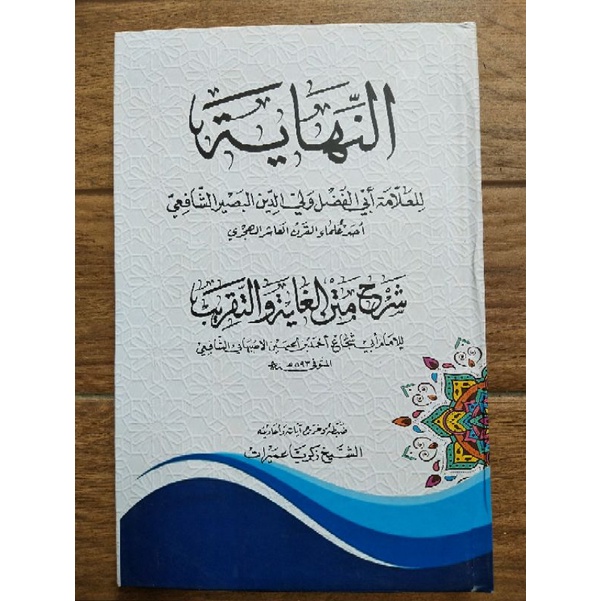 النِّهَايَة
للعلّامة أبي الفضل ولي الدين البصير الشافعيّ
أحد علماء القرن العاشر الهجري
شرح متن الغاية والتقريب
للإمام أبي شجاع أحمد بن الحسين الأصبهاني الشافعي
المتوفى ٥٩٣ هـ
ضبطه وخرج آياته وأحاديثه
الشيخ زكريا عميرات